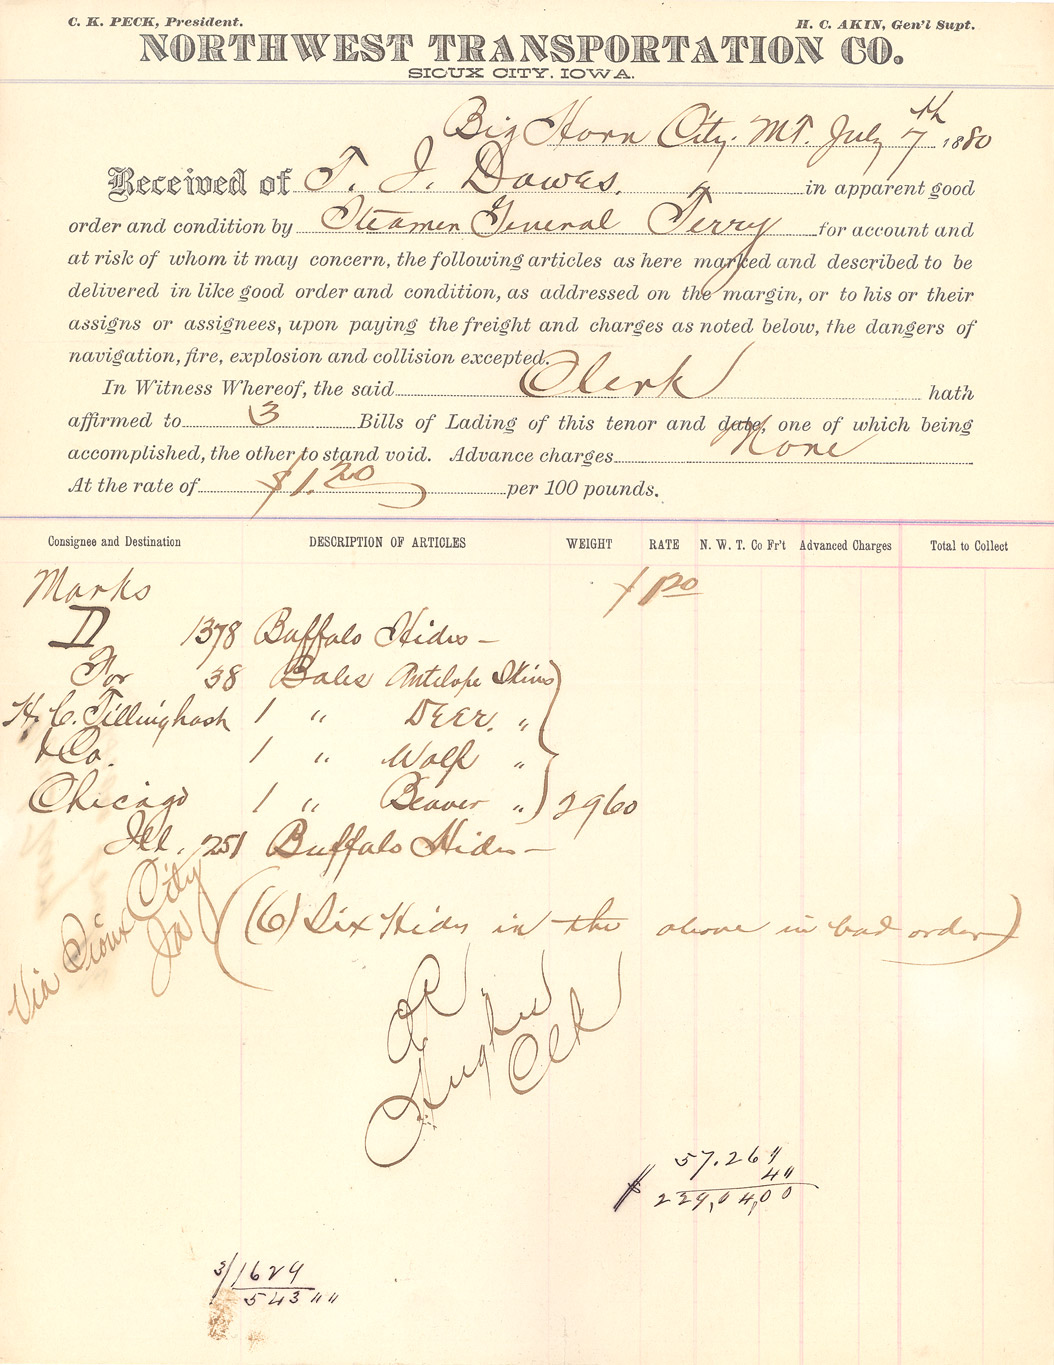 C. K. PECK, President. H. C. AKIN, Gen'l Supt.
NORTHWEST TRANSPORTATION CO.
SIOUX CITY, IOWA.
Big Horn City. MT. July 7th 1880
Received of T. J. Dawes. in apparent good
order and condition by Steamer General Terry for account and
at risk of whom it may concern, the following articles as here marked and described to be
delivered in like good order and condition, as addressed on the margin, or to his or their
assigns or assignees, upon paying the freight and charges as noted below, the dangers of
navigation, fire, explosion and collision excepted.
In Witness Whereof, the said Clerk hath
affirmed to 3 Bills of Lading of this tenor and date, one of which being
accomplished, the other to stand void. Advance charges None
At the rate of $1.20 per 100 pounds.
Consignee and Destination DESCRIPTION OF ARTICLES WEIGHT RATE N. W. T. Co Fr't Advanced Charges Total to Collect
Marks 1.20
D 1378 Buffalo Hides —
For 38 Bales Antelope Skins
H. C. Tillinghash 1 " DEER. "
& Co. 1 " Wolf "
Chicago 1 " Beaver " 2960
Ill. 251 Buffalo Hides —
Via Sioux City Ia
((6) Six Hides in the above in bad order)
Hughes Clk
57.26 "
4 "
$ 229,04,00
3/1629
543 " "